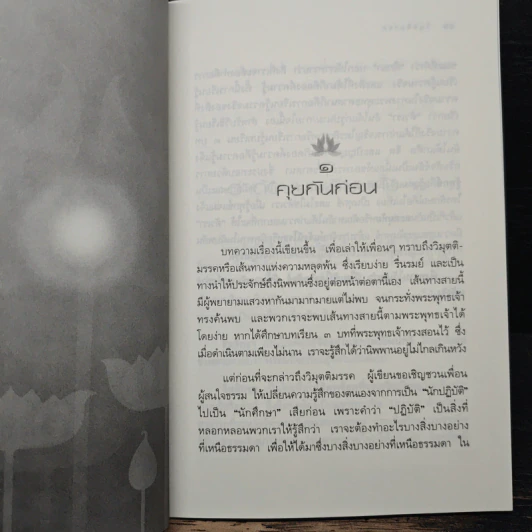 ๑
คุยกันก่อน
บทความเรื่องนี้เขียนขึ้น เพื่อเล่าให้เพื่อนๆ ทราบถึงวิมุตติ-
มรรคหรือเส้นทางแห่งความหลุดพ้น ซึ่งเรียบง่าย รื่นรมย์ และเป็น
ทางนำให้ประจักษ์ถึงนิพพานซึ่งอยู่ต่อหน้าต่อตานี้เอง เส้นทางสายนี้
มีผู้พยายามแสวงหากันมามากมายแต่ไม่พบ จนกระทั่งพระพุทธเจ้า
ทรงค้นพบ และพวกเราจะพบเส้นทางสายนี้ตามพระพุทธเจ้าได้
โดยง่าย หากได้ศึกษาบทเรียน ๓ บทที่พระพุทธเจ้าทรงสอนไว้ ซึ่ง
เมื่อดำเนินตามเพียงไม่นาน เราจะรู้สึกได้ว่านิพพานอยู่ไม่ไกลเกินหวัง
แต่ก่อนที่จะกล่าวถึงวิมุตติมรรค ผู้เขียนขอเชิญชวนเพื่อน
ผู้สนใจธรรม ให้เปลี่ยนความรู้สึกของตนเองจากการเป็น "นักปฏิบัติ"
ไปเป็น "นักศึกษา" เสียก่อน เพราะคำว่า "ปฏิบัติ" เป็นสิ่งที่
หลอกหลอนพวกเราให้รู้สึกว่า เราจะต้องทำอะไรบางสิ่งบางอย่าง
ที่เหนือธรรมดา เพื่อให้ได้มาซึ่งบางสิ่งบางอย่างที่เหนือธรรมดา ใน